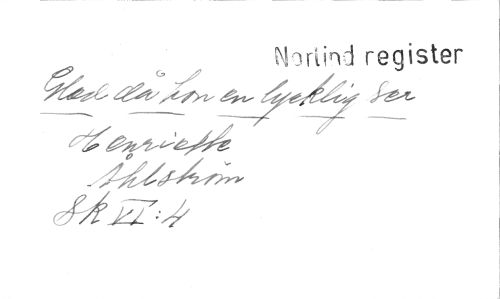 Norlind register
Glad då hon en lycklig ser
Henriette
Åhlström
SK VI:4